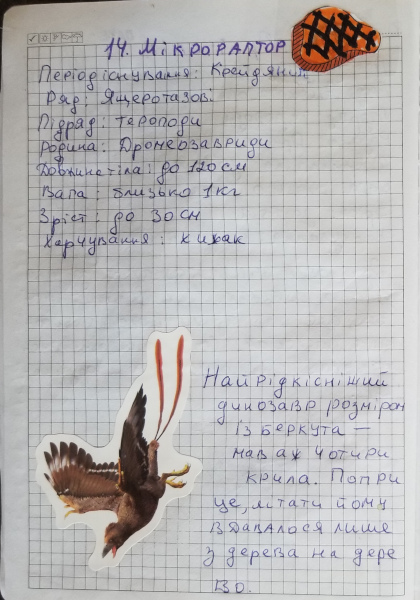 14. Мікрораптор
Період існування: Крейдяний.
Ряд: Ящеротазові
Підряд: тероподи
Родина: Дромеозавриди
Довжина тіла: до 120 см
Вага: близько 1 кг
Зріст: до 30 см
Харчування: хижак
Найрідкісніший
динозавр розміром
із беркута —
мав аж чотири
крила. Попри
це, літати йому
вдавалося лише
з дерева на дере
во.